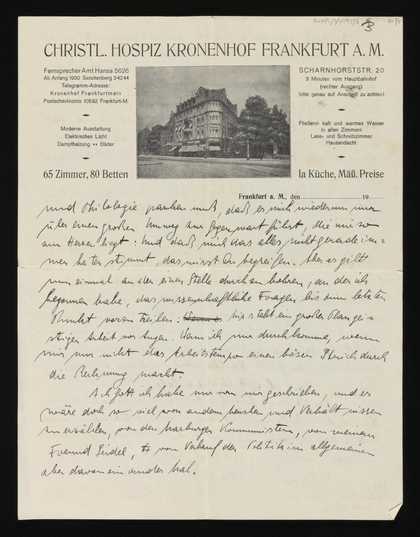 3
CHRISTL. HOSPIZ KRONENHOF FRANKFURT A. M.
Fernsprecher Amt Hansa 5626
Ab Anfang 1930 Senckenberg 34244
Telegramm-Adresse:
Kronenhof Frankfurtmain
Postscheckkonto 10692 Frankfurt-M.
Moderne Ausstattung
Elektrisches Licht
Dampfheizung ** Bäder
65 Zimmer, 80 Betten
SCHARNHORSTSTR. 20
3 Minuten vom Hauptbahnhof
(rechter Ausgang)
bitte genau auf Anschrift zu achten!
Fließend kalt und warmes Wasser
in allen Zimmern
Lese- und Schreibzimmer
Hausandacht
Ia Küche, Mäß. Preise
Frankfurt a. M., den 19
und Philologie machen muß, daß es mich wiederum nur
über einen großen Umweg zur Gegenwart führt, die mir so
am Herzen liegt. Und daß mich das alles nicht gerade im-
mer heiter stimmt, das wirst Du begreifen. Aber es gilt
nun einmal an der einen Stelle durchzubohren, an der ich
begonnen habe, das wissenschaftliche Fragen bis zum letzten
Punkt voranzutreiben. bis steht ein großes Plan gei-
stiger Arbeit vor Augen. Wenn ich nur durchkomme, wenn
mir nur nicht das Arbeitstempo einen bösen Strich durch
die Rechnung macht.
Ach Gott ich habe nur von mir geschrieben, und es
wäre doch so viel von andern Menschen und Verhältnissen
zu erzählen, von den Marburger Kommunisten, von meinem
Freund Seidel, vom Verlauf der Politik im allgemeinen
aber davon ein ander Mal.